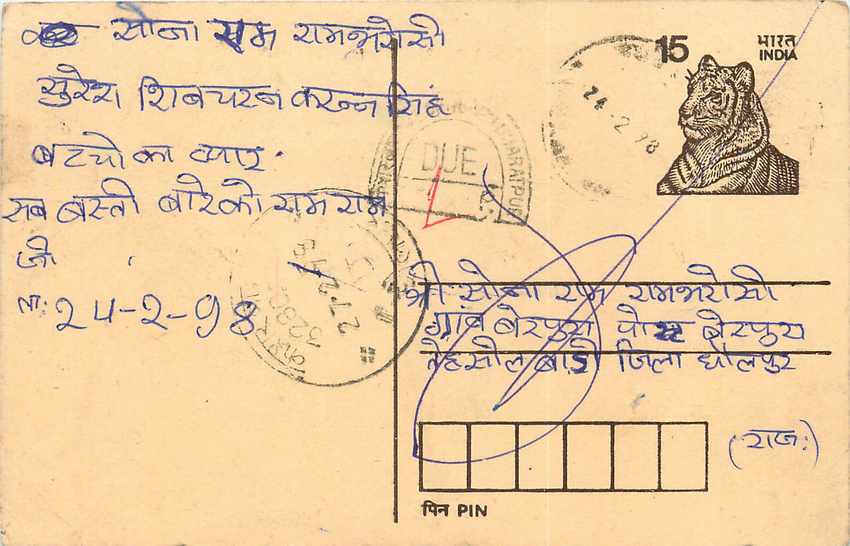 सोना राम रामभरोसी
सुरेश शिबचरन करन्न सिहं
बच्चो का प्यार.
सब बस्ती बारे को राम राम
जी
ता: 24-2-98
15
भारत
INDIA
24-2-98
DUE
BHARATPUR
27 2 98
श्री सोना राम रामभरोसी
ग्रांव बेरपुरा पोस्ट बेरपुरा
तेहसील बाडी जिला धौलपुर
(राज:)
पिन PIN